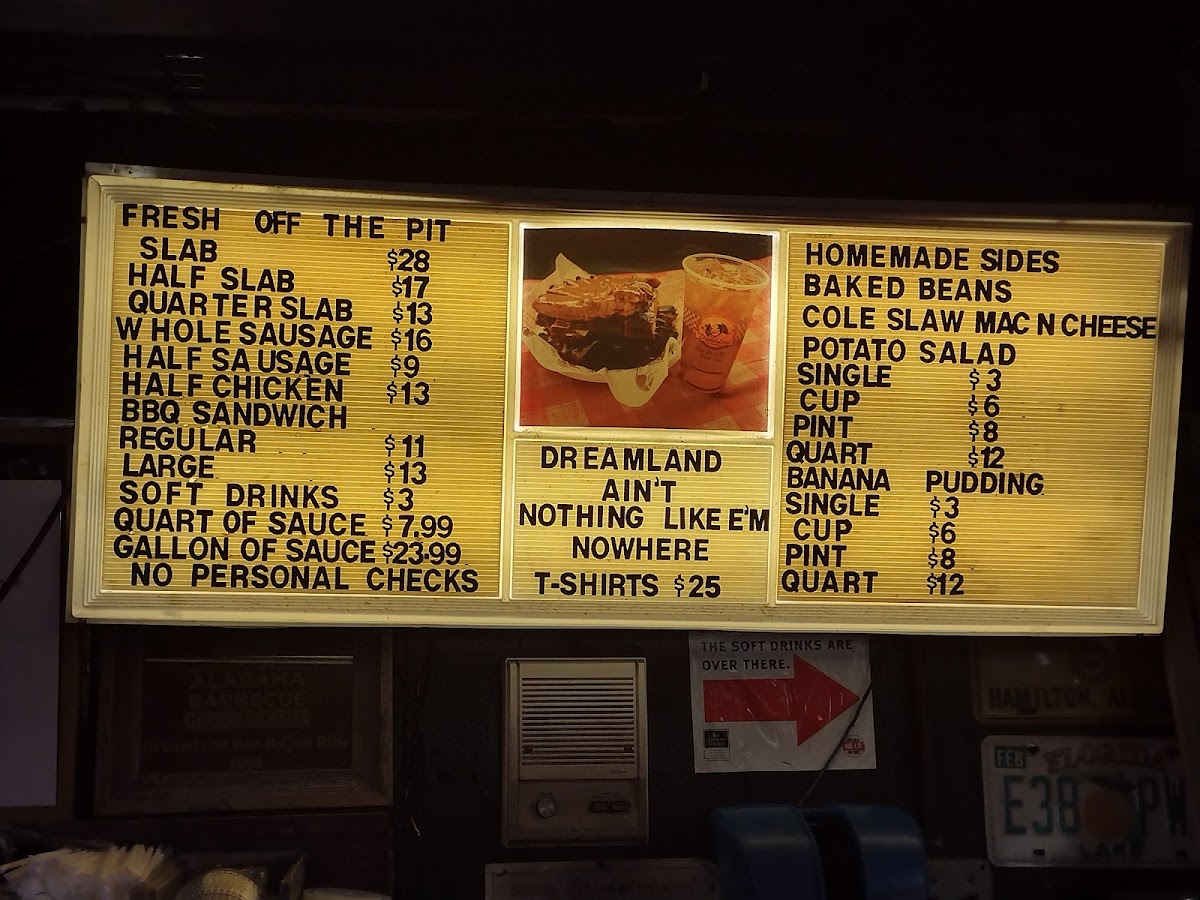 FRESH OFF THE PIT
SLAB $28
HALF SLAB $17
QUARTER SLAB $13
WHOLE SAUSAGE $16
HALF SAUSAGE $9
HALF CHICKEN $13
BBQ SANDWICH
REGULAR $11
LARGE $13
SOFT DRINKS $3
QUART OF SAUCE $7.99
GALLON OF SAUCE $23.99
NO PERSONAL CHECKS
DREAMLAND
AIN'T
NOTHING LIKE E'M
NOWHERE
T-SHIRTS $25
HOMEMADE SIDES
BAKED BEANS
COLE SLAW MAC N CHEESE
POTATO SALAD
SINGLE $3
CUP $6
PINT $8
QUART $12
BANANA PUDDING
SINGLE $3
CUP $6
PINT $8
QUART $12
ALABAMA
BARBECUE
HALL OF FAME
Dreamland Bar-B-Que Ribs
THE SOFT DRINKS ARE
OVER THERE.
HAMILTON,
FEB
FLORIDA
E38 PW
LAKE